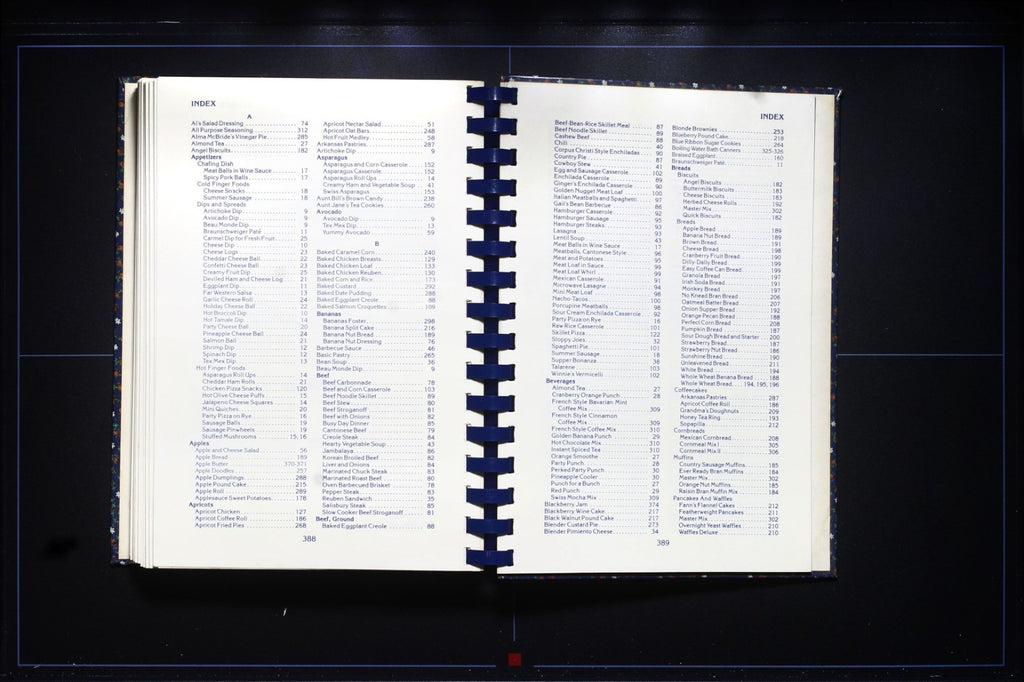 INDEX
A
Al's Salad Dressing 74
All Purpose Seasoning 312
Alma McBride's Vinegar Pie 285
Almond Tea 27
Angel Biscuits 182
Appetizers
Chafing Dish
Meat Balls in Wine Sauce 17
Spicy Pork Balls 17
Cold Finger Foods
Cheese Snacks 18
Summer Sausage 18
Dips and Spreads
Artichoke Dip 9
Avacado Dip 9
Beau Monde Dip 9
Braunschweiger Paté 11
Carmel Dip for Fresh Fruit 25
Cheese Dip 10
Cheese Logs 23
Cheddar Cheese Ball 22
Confetti Cheese Ball 23
Creamy Fruit Dip 25
Deviled Ham and Cheese Log 21
Eggplant Dip 11
Far Western Salsa 13
Garlic Cheese Roll 24
Holiday Cheese Ball 22
Hot Broccoli Dip 10
Hot Tamale Dip 14
Party Cheese Ball 20
Pineapple Cheese Ball 24
Salmon Ball 21
Shrimp Dip 12
Spinach Dip 12
Tex Mex Dip 13
Hot Finger Foods
Asparagus Roll Ups 14
Cheddar Ham Rolls 21
Chicken Pizza Snacks 120
Hot Olive Cheese Puffs 15
Jalapeno Cheese Squares 14
Mini Quiches 20
Party Pizza on Rye 16
Sausage Balls 19
Sausage Pinwheels 19
Stuffed Mushrooms 15, 16
Apples
Apple and Cheese Salad 56
Apple Bread 189
Apple Butter 370-371
Apple Doodles 257
Apple Dumplings 288
Apple Pound Cake 215
Apple Roll 289
Applesauce Sweet Potatoes 178
Apricots
Apricot Chicken 127
Apricot Coffee Roll 186
Apricot Fried Pies 268
Apricot Nectar Salad 51
Apricot Oat Bars 248
Hot Fruit Medley 58
Arkansas Pastries 287
Artichoke Dip 9
Asparagus
Asparagus and Corn Casserole 152
Asparagus Casserole 152
Asparagus Roll Ups 14
Creamy Ham and Vegetable Soup 41
Swiss Asparagus 153
Aunt Bill's Brown Candy 238
Aunt Jane's Tea Cookies 260
Avocado
Avocado Dip 9
Tex Mex Dip 13
Yummy Avocado 59
B
Baked Caramel Corn 240
Baked Chicken Breasts 129
Baked Chicken Loaf 133
Baked Chicken Reuben 130
Baked Corn and Rice 173
Baked Custard 292
Baked Date Pudding 288
Baked Eggplant Creole 88
Baked Salmon Croquettes 109
Bananas
Bananas Foster 298
Banana Split Cake 216
Banana Nut Bread 189
Banana Nut Dressing 76
Barbecue Sauce 46
Basic Pastry 265
Bean Soup 36
Beau Monde Dip 9
Beef
Beef Carbonnade 78
Beef and Corn Casserole 103
Beef Noodle Skillet 89
Beef Stew 80
Beef Stroganoff 81
Beef with Onions 82
Busy Day Dinner 85
Cantonese Beef 79
Creole Steak 84
Hearty Vegetable Soup 43
Jambalaya 86
Korean Broiled Beef 82
Liver and Onions 84
Marinated Chuck Steak 83
Marinated Roast Beef 80
Oven Barbecued Brisket 78
Pepper Steak 83
Reuben Sandwich 35
Salisbury Steak 85
Slow Cooker Beef Stroganoff 81
Beef, Ground
Baked Eggplant Creole 88
388
INDEX
Beef-Bean-Rice Skillet Meal 87
Beef Noodle Skillet 89
Cashew Beef 88
Chili 40
Corpus Christi Style Enchiladas 90
Country Pie 87
Cowboy Stew 41
Egg and Sausage Casserole 102
Enchilada Casserole 89
Ginger's Enchilada Casserole 90
Golden Nugget Meat Loaf 100
Italian Meatballs and Spaghetti 97
Gail's Bean Barbecue 86
Hamburger Casserole 92
Hamburger Sausage 95
Hamburger Steaks 93
Lasagna 93
Lentil Soup 43
Meat Balls in Wine Sauce 17
Meatballs, Cantonese Style 96
Meat and Potatoes 95
Meat Loaf in Sauce 99
Meat Loaf Whirl 99
Mexican Casserole 91
Microwave Lasagne 94
Mini Meat Loaf 98
Nacho-Tacos 100
Porcupine Meatballs 98
Sour Cream Enchilada Casserole 92
Party Pizza on Rye 16
Raw Rice Casserole 101
Skillet Pizza 122
Sloppy Joes 32
Spaghetti Pie 101
Summer Sausage 18
Supper Bonanza 38
Talarene 103
Winnie's Vermicelli 102
Beverages
Almond Tea 27
Cranberry Orange Punch 28
French Style Bavarian Mint
Coffee Mix 309
French Style Cinnamon
Coffee Mix 309
French Style Coffee Mix 310
Golden Banana Punch 29
Hot Chocolate Mix 310
Instant Spiced Tea 310
Orange Smoothe 27
Party Punch 28
Perked Party Punch 30
Pineapple Cooler 30
Punch for a Bunch 27
Red Punch 29
Swiss Mocha Mix 309
Blackberry Jam 374
Blackberry Wine Cake 217
Black Walnut Pound Cake 217
Blender Custard Pie 273
Blender Pimiento Cheese 34
Blonde Brownies 253
Blueberry Pound Cake 218
Blue Ribbon Sugar Cookies 264
Boiling Water Bath Canners 325-326
Braised Eggplant 160
Braunschweiger Paté 11
Breads
Biscuits
Angel Biscuits 182
Buttermilk Biscuits 183
Cheese Biscuits 183
Herbed Cheese Rolls 192
Master Mix 302
Quick Biscuits 182
Breads
Apple Bread 189
Banana Nut Bread 189
Brown Bread 191
Cheese Bread 198
Cranberry Fruit Bread 190
Dilly Daily Bread 199
Easy Coffee Can Bread 199
Granola Bread 197
Irish Soda Bread 191
Monkey Bread 197
No Knead Bran Bread 206
Oatmeal Batter Bread 207
Onion Supper Bread 192
Orange Pecan Bread 188
Perfect Corn Bread 208
Pumpkin Bread 187
Sour Dough Bread and Starter 200
Strawberry Bread 187
Strawberry-Nut Bread 186
Sunshine Bread 190
Unleavened Bread 211
White Bread 194
Whole Wheat Banana Bread 188
Whole Wheat Bread 194, 195, 196
Coffeecakes
Arkansas Pastries 287
Apricot Coffee Roll 186
Grandma's Doughnuts 209
Honey Tea Ring 193
Sopapilla 212
Cornbreads
Mexican Cornbread 208
Cornmeal Mix I 305
Cornmeal Mix II 306
Muffins
Country Sausage Muffins 185
Ever Ready Bran Muffins 184
Master Mix 302
Orange-Nut Muffins 185
Raisin Bran Muffin Mix 184
Pancakes And Waffles
Fann's Flannel Cakes 212
Featherweight Pancakes 211
Master Mix 302
Overnight Yeast Waffles 210
Waffles Deluxe 210
389